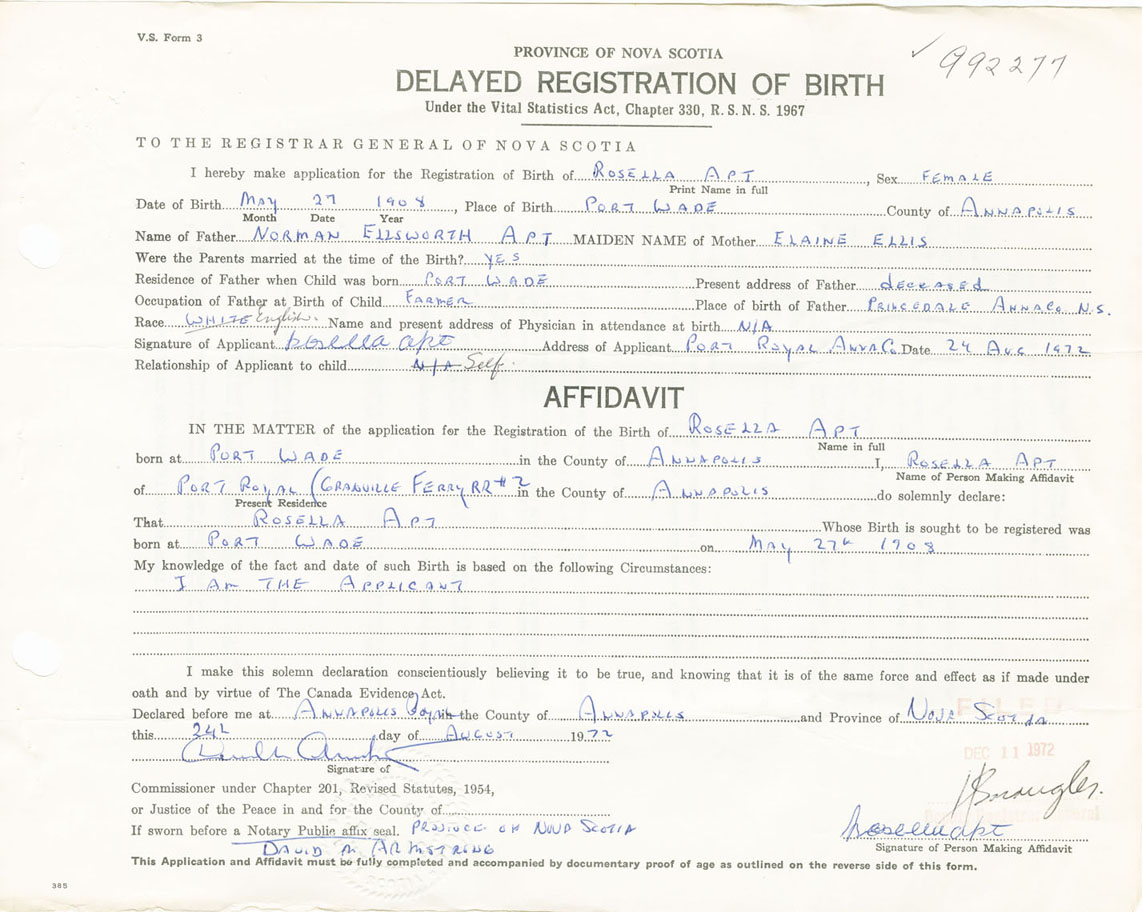 V.S. Form 3
PROVINCE OF NOVA SCOTIA
992277
DELAYED REGISTRATION OF BIRTH
Under the Vital Statistics Act, Chapter 330, R. S. N. S. 1967
TO THE REGISTRAR GENERAL OF NOVA SCOTIA
I hereby make application for the Registration of Birth of ROSELLA APT, Sex FEMALE
Print Name in full
Date of Birth May 27 1908, Place of Birth PORT WADE County of ANNAPOLIS
Month Date Year
Name of Father NORMAN ELLSWORTH APT MAIDEN NAME of Mother ELAINE ELLIS
Were the Parents married at the time of the Birth? YES
Residence of Father when Child was born PORT WADE Present address of Father deceased
Occupation of Father at Birth of Child FARMER Place of birth of Father PRINCEDALE ANNA Co. N.S.
Race WHITE English. Name and present address of Physician in attendance at birth N/A
Signature of Applicant Rosella Apt Address of Applicant PORT ROYAL ANNA Co Date 24 AUG 1972
Relationship of Applicant to child N/A Self.
AFFIDAVIT
IN THE MATTER of the application for the Registration of the Birth of ROSELLA APT
Name in full
born at PORT WADE in the County of ANNAPOLIS I, ROSELLA APT
Name of Person Making Affidavit
of PORT ROYAL (GRANVILLE FERRY RR#2 in the County of ANNAPOLIS do solemnly declare:
Present Residence
That ROSELLA APT Whose Birth is sought to be registered was
born at PORT WADE on May 27th 1908
My knowledge of the fact and date of such Birth is based on the following Circumstances:
I AM THE APPLICANT
I make this solemn declaration conscientiously believing it to be true, and knowing that it is of the same force and effect as if made under
oath and by virtue of The Canada Evidence Act.
Declared before me at ANNAPOLIS Royal in the County of ANNAPOLIS and Province of NOVA SCOTIA
FILED
this 24th day of AUGUST 1972
DEC 11 1972
Signature of
Commissioner under Chapter 201, Revised Statutes, 1954,
or Justice of the Peace in and for the County of
If sworn before a Notary Public affix seal. PROVINCE OF NOVA SCOTIA
Rosella Apt
DAVID M ARMSTRONG
Signature of Person Making Affidavit
This Application and Affidavit must be fully completed and accompanied by documentary proof of age as outlined on the reverse side of this form.
385